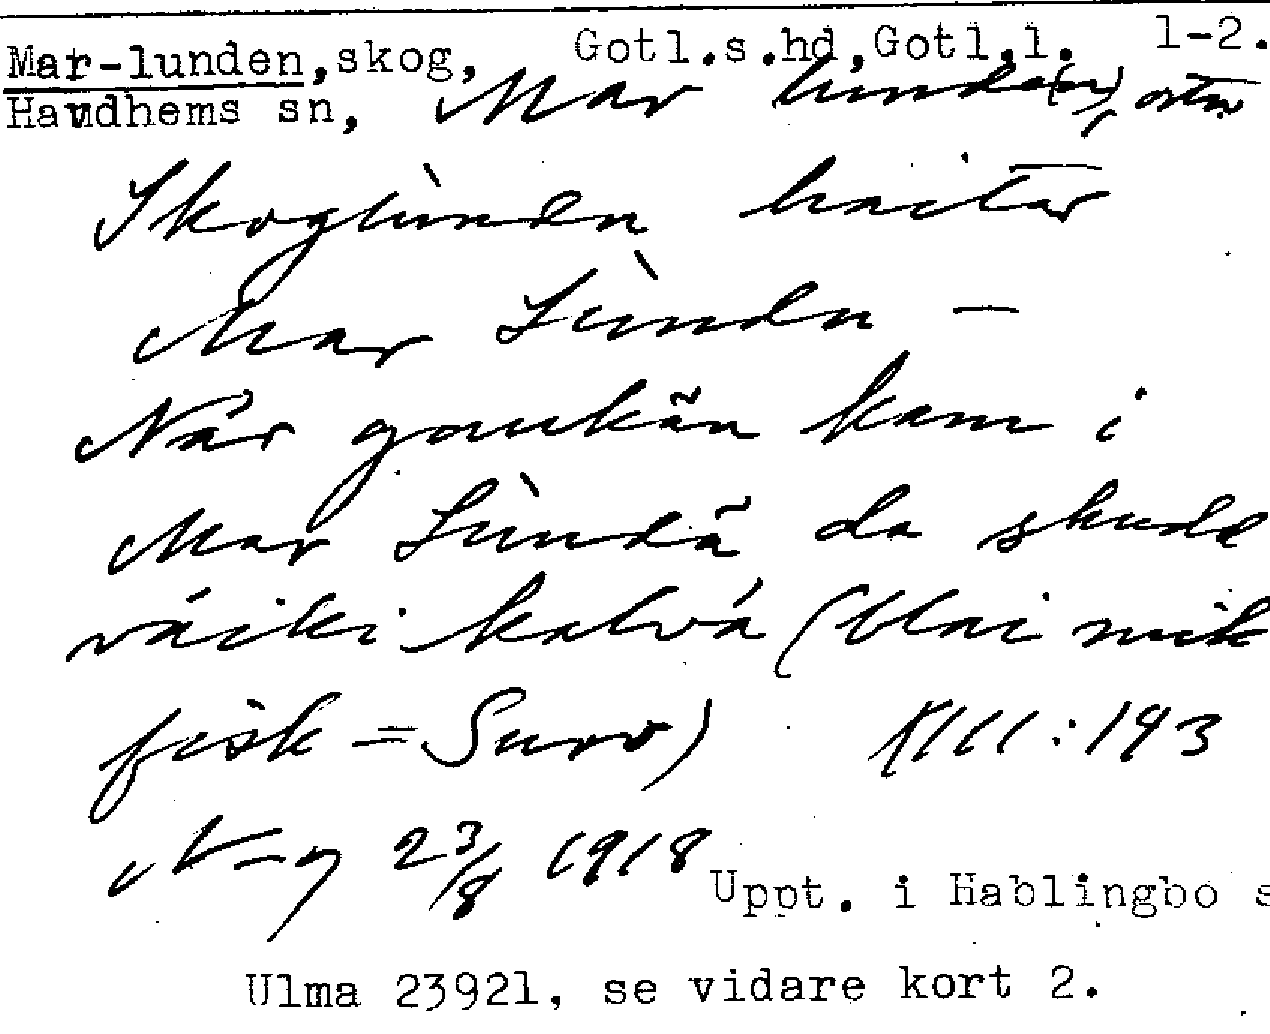 Mar-lunden, skog, Gotl.s.hd, Gotl.l. 1-2.
Havdhems sn, Mar lunde(n), ortn
Skoglùnden haitar
Mar Lùnden –
När gaukän kam i
Mar Lùndä da skude
väiki kalvá (blai mik
fisk = Surv) XIII:193
N-y 23/8 1918
Uppt. i Hablingbo s
Ulma 23921, se vidare kort 2.